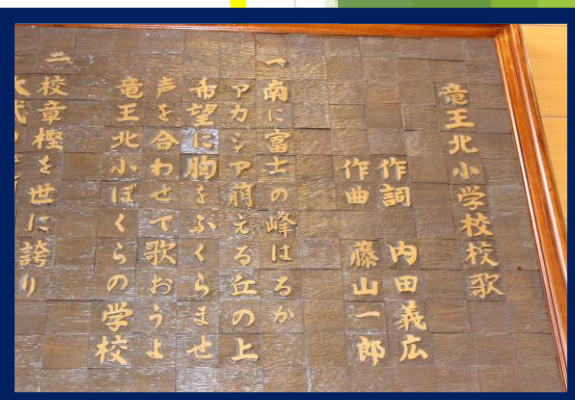 竜王北小学校校歌
作詞 内田義広
作曲 藤山一郎
一 南に富士の峰はるか
アカシア萠える丘の上
希望に胸をふくらませ
声を合わせて歌おうよ
竜王北小ぼくらの学校
二 校章樫を世に誇り